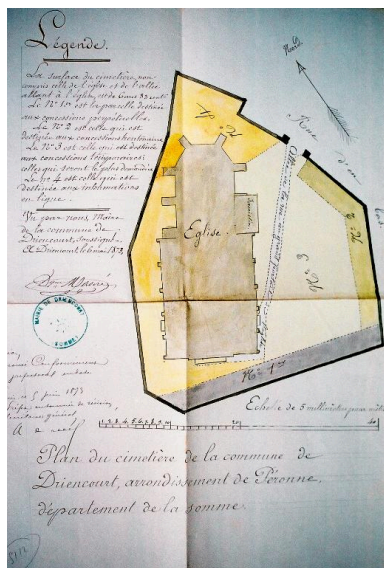 Légende.
La surface du cimetière, non
compris celle de l'église et de l'allée
allant à l'église, est de 6 ares 33 cent.
Le Nº 1er est la parcelle destinée
aux concessions perpétuelles.
Le Nº 2 est celle qui est
destinée aux concessions trentenaires
Le Nº 3 est celle qui est destinée
aux concessions temporaires;
celles qui seront le plus demandées
Le Nº 4 est celle qui est
destinée aux inhumations
en ligne.
Vu par nous, Maire
de la commune de
Driencourt, soussigné.
A Driencourt le 6 mai 1873.
MAIRIE DE DRIENCOURT
(SOMME)
5 juin 1873
Nord
Rue d'en
Nº 4
Eglise
Sacristie
Nº 2
Nº 3
Nº 1er
Echelle de 5 millimètres pour mètre
1 2 3 4 5 6 7 8 9 10
20
40
Plan du cimetière de la commune de
Driencourt, arrondissement de Péronne,
département de la somme.